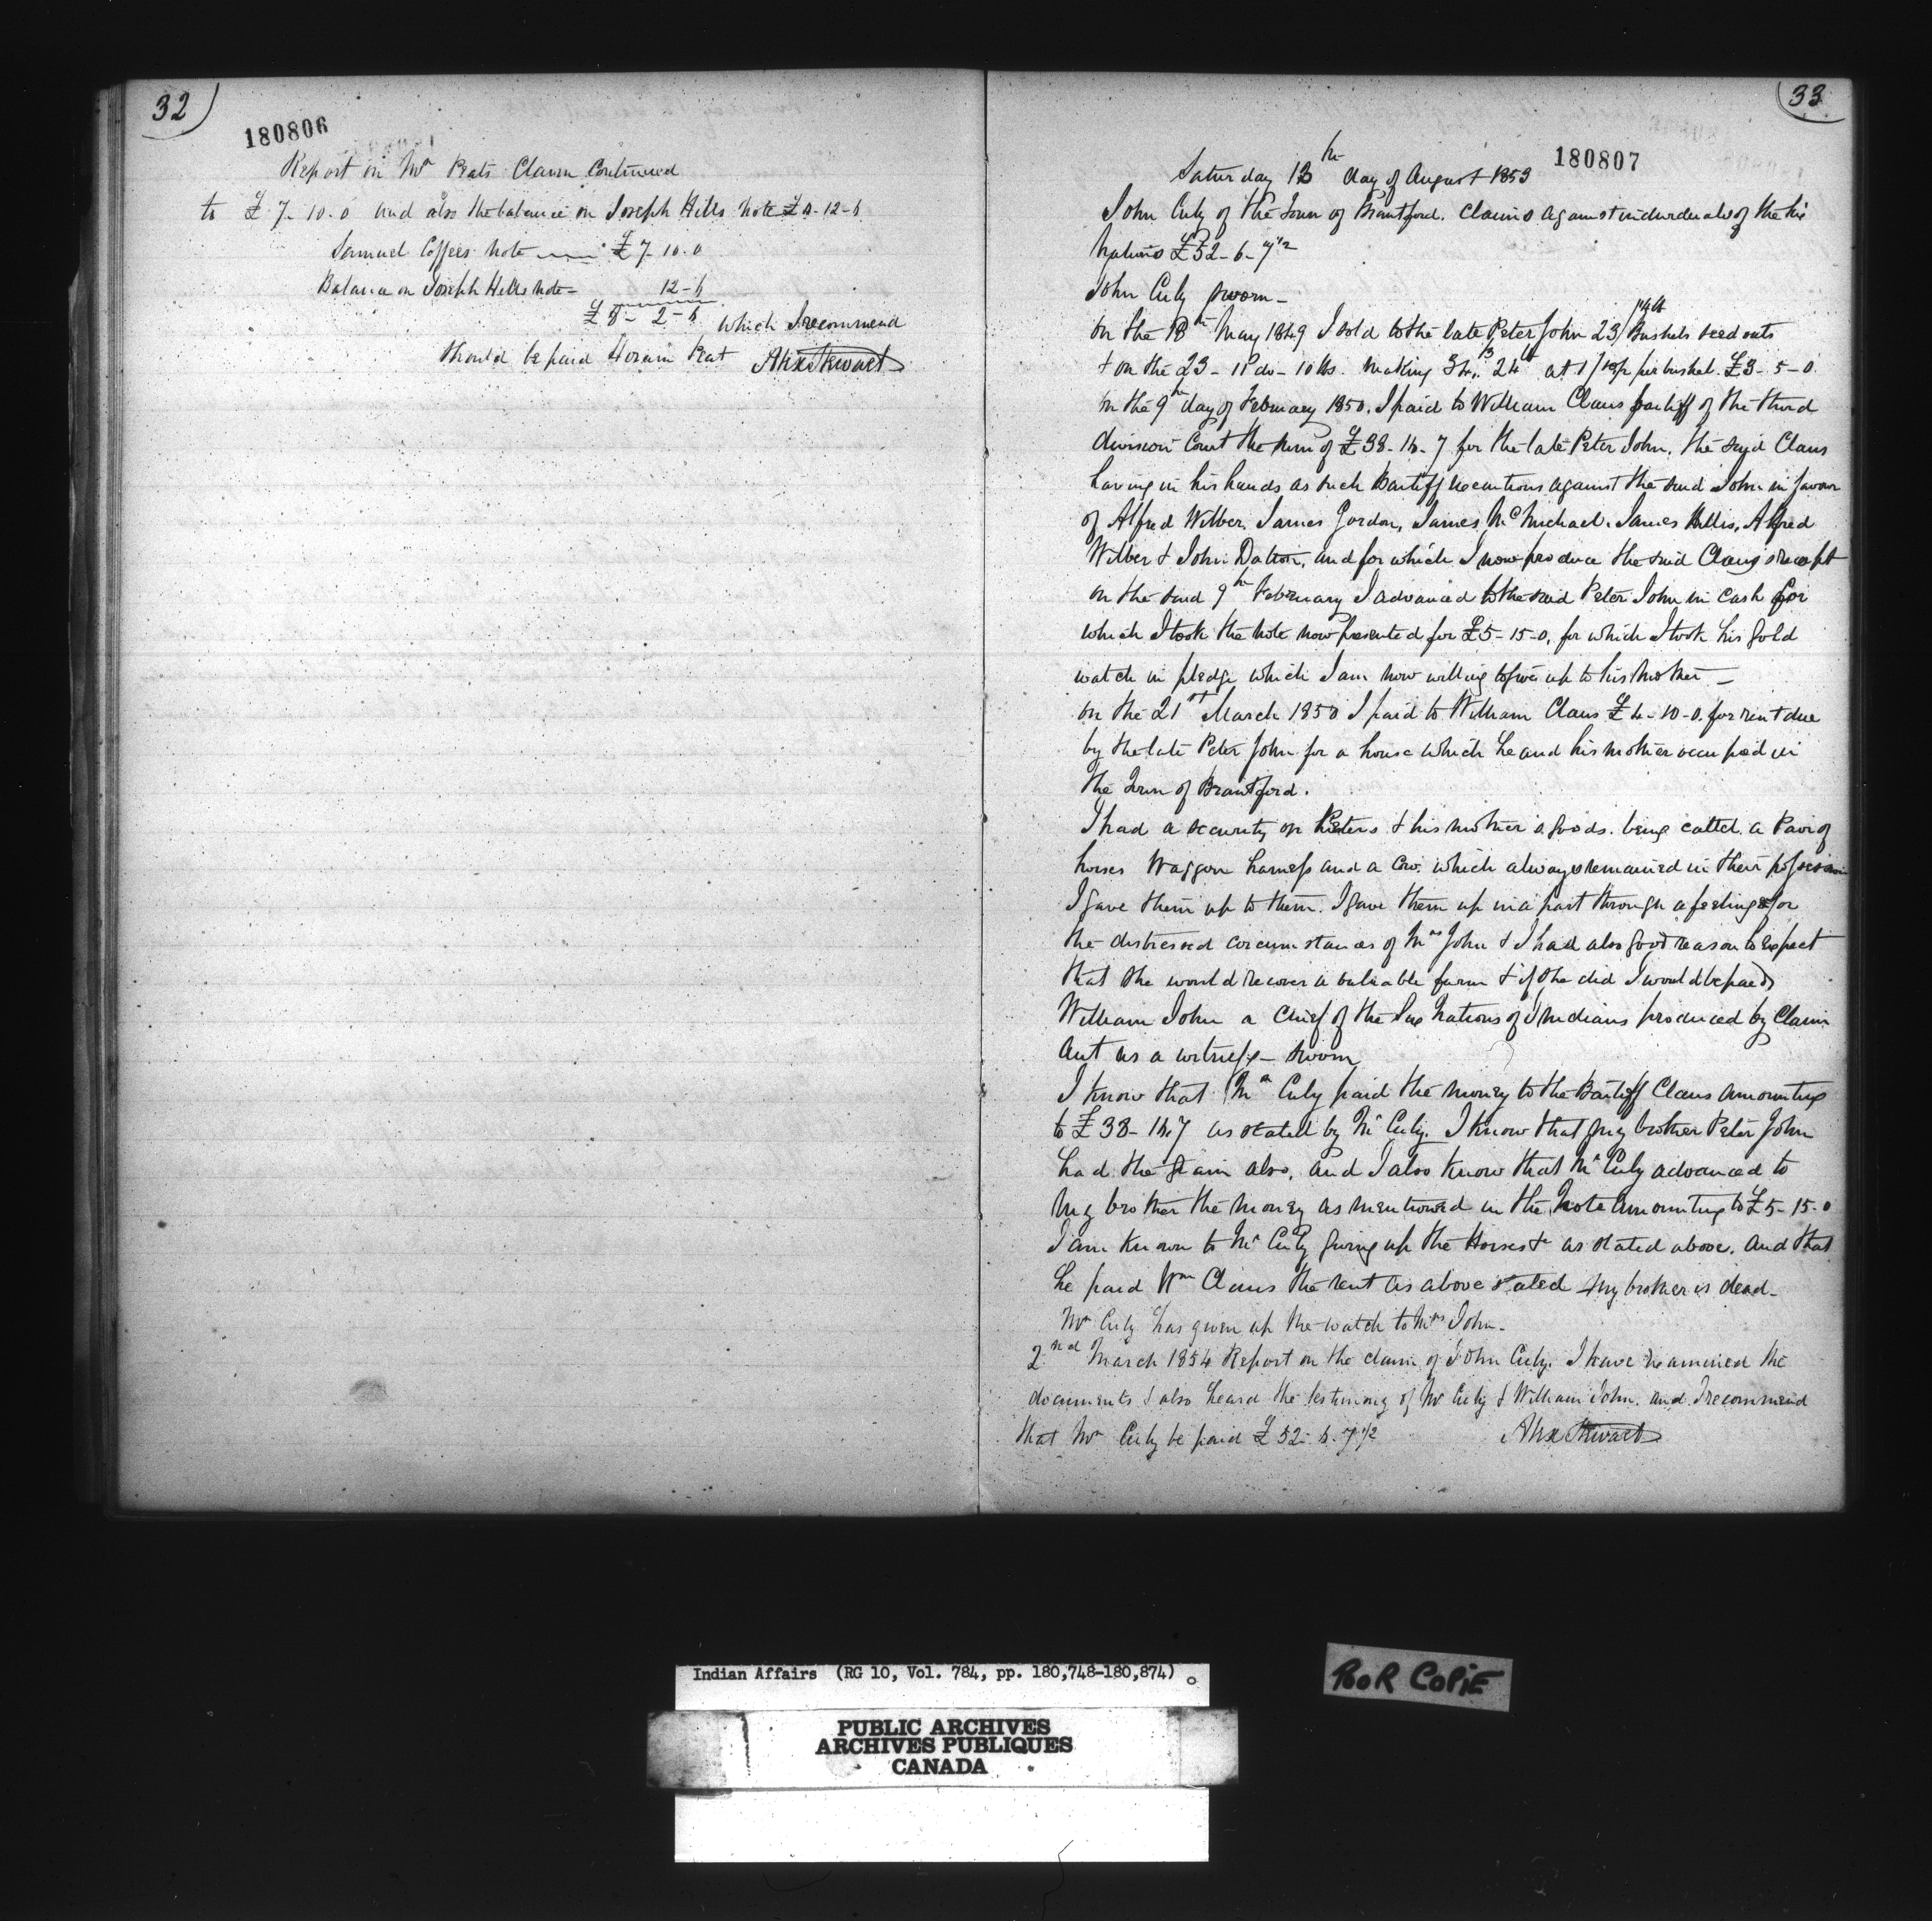 32
180806
Report on Mr Peats Claim Continued
to £7-10.0 and also the balance on Joseph Hills note £0-12-6
Samuel Coffees Note £7-10.0
Balance on Joseph Hills note - 12-6
£8-2-6 which I recommend
Should be paid Horam Peat Alex Stewart
33
180807
Saturday 13th day of August 1853
John Culy of the Town of Brantford. Claims against individuals of the Six
Nations £52-6-7 1/2
John Culy sworn -
On the 18th May 1849 I sold to the late Peter John 23 Bushels seed oats
+ on the 23 - 11 do - 10 lbs. making 34. 24 at per bushel. £3-5-0
On the 9th day of February 1850. I paid to William Claus Bailiff of the third
division Court the sum of £38-16-7 for the late Peter John, the said Claus
having in his hands as such Bailiff executions against the said John in favour
of Alfred Wilber, James Gordon, James McMichael. James Alfred
Wilber & John Dalton, and for which I now produce the said Claus's receipt
on the said 9th February I advanced to the said Peter John in cash for
which I took the note now presented for £5-15-0, for which I took his Gold
watch in pledge which I am now willing to give up to his Mother -
On the 21st March 1850 I paid to William Claus £4-10-0. for rent due
by the late Peter John for a house which he and his mother occupied in
the Town of Brantford.
I had a security on Peters & his mother's goods. being cattle. a Pair of
horses Waggon harness and a Cow. which always remained in their possession
I gave them up to them. I gave them up in a part through a feeling for
the distressed circumstances of Mrs John & I had also good reason to expect
that she would recover a valuable farm & if she did I would be paid
William John a Chief of the Six Nations of Indians produced by Claim
ant as a witness - sworn
I know that Mr Culy paid the money to the Bailiff Claus amounting
to £38-16.7 as stated by Mr Culy. I know that my brother Peter John
had the grain also, and I also know that Mr Culy advanced to
my brother the money as mentioned in the Note amounting to £5-15-0
I am known to Mr Culy giving up the Horses &c as stated above. And that
he paid Wm Claus the rent as above stated my brother is dead -
Mr Culy has given up the watch to Mrs John -
2nd March 1854 Report on the claim of John Culy. I have examined the
documents & also heard the testimony of Mr Culy & William John. and I recommend
that Mr Culy be paid £52-6-7 1/2 Alex Stewart
Indian Affairs (RG 10, Vol. 784, pp. 180,748-180,874)
PUBLIC ARCHIVES
ARCHIVES PUBLIQUES
CANADA
POOR COPIE